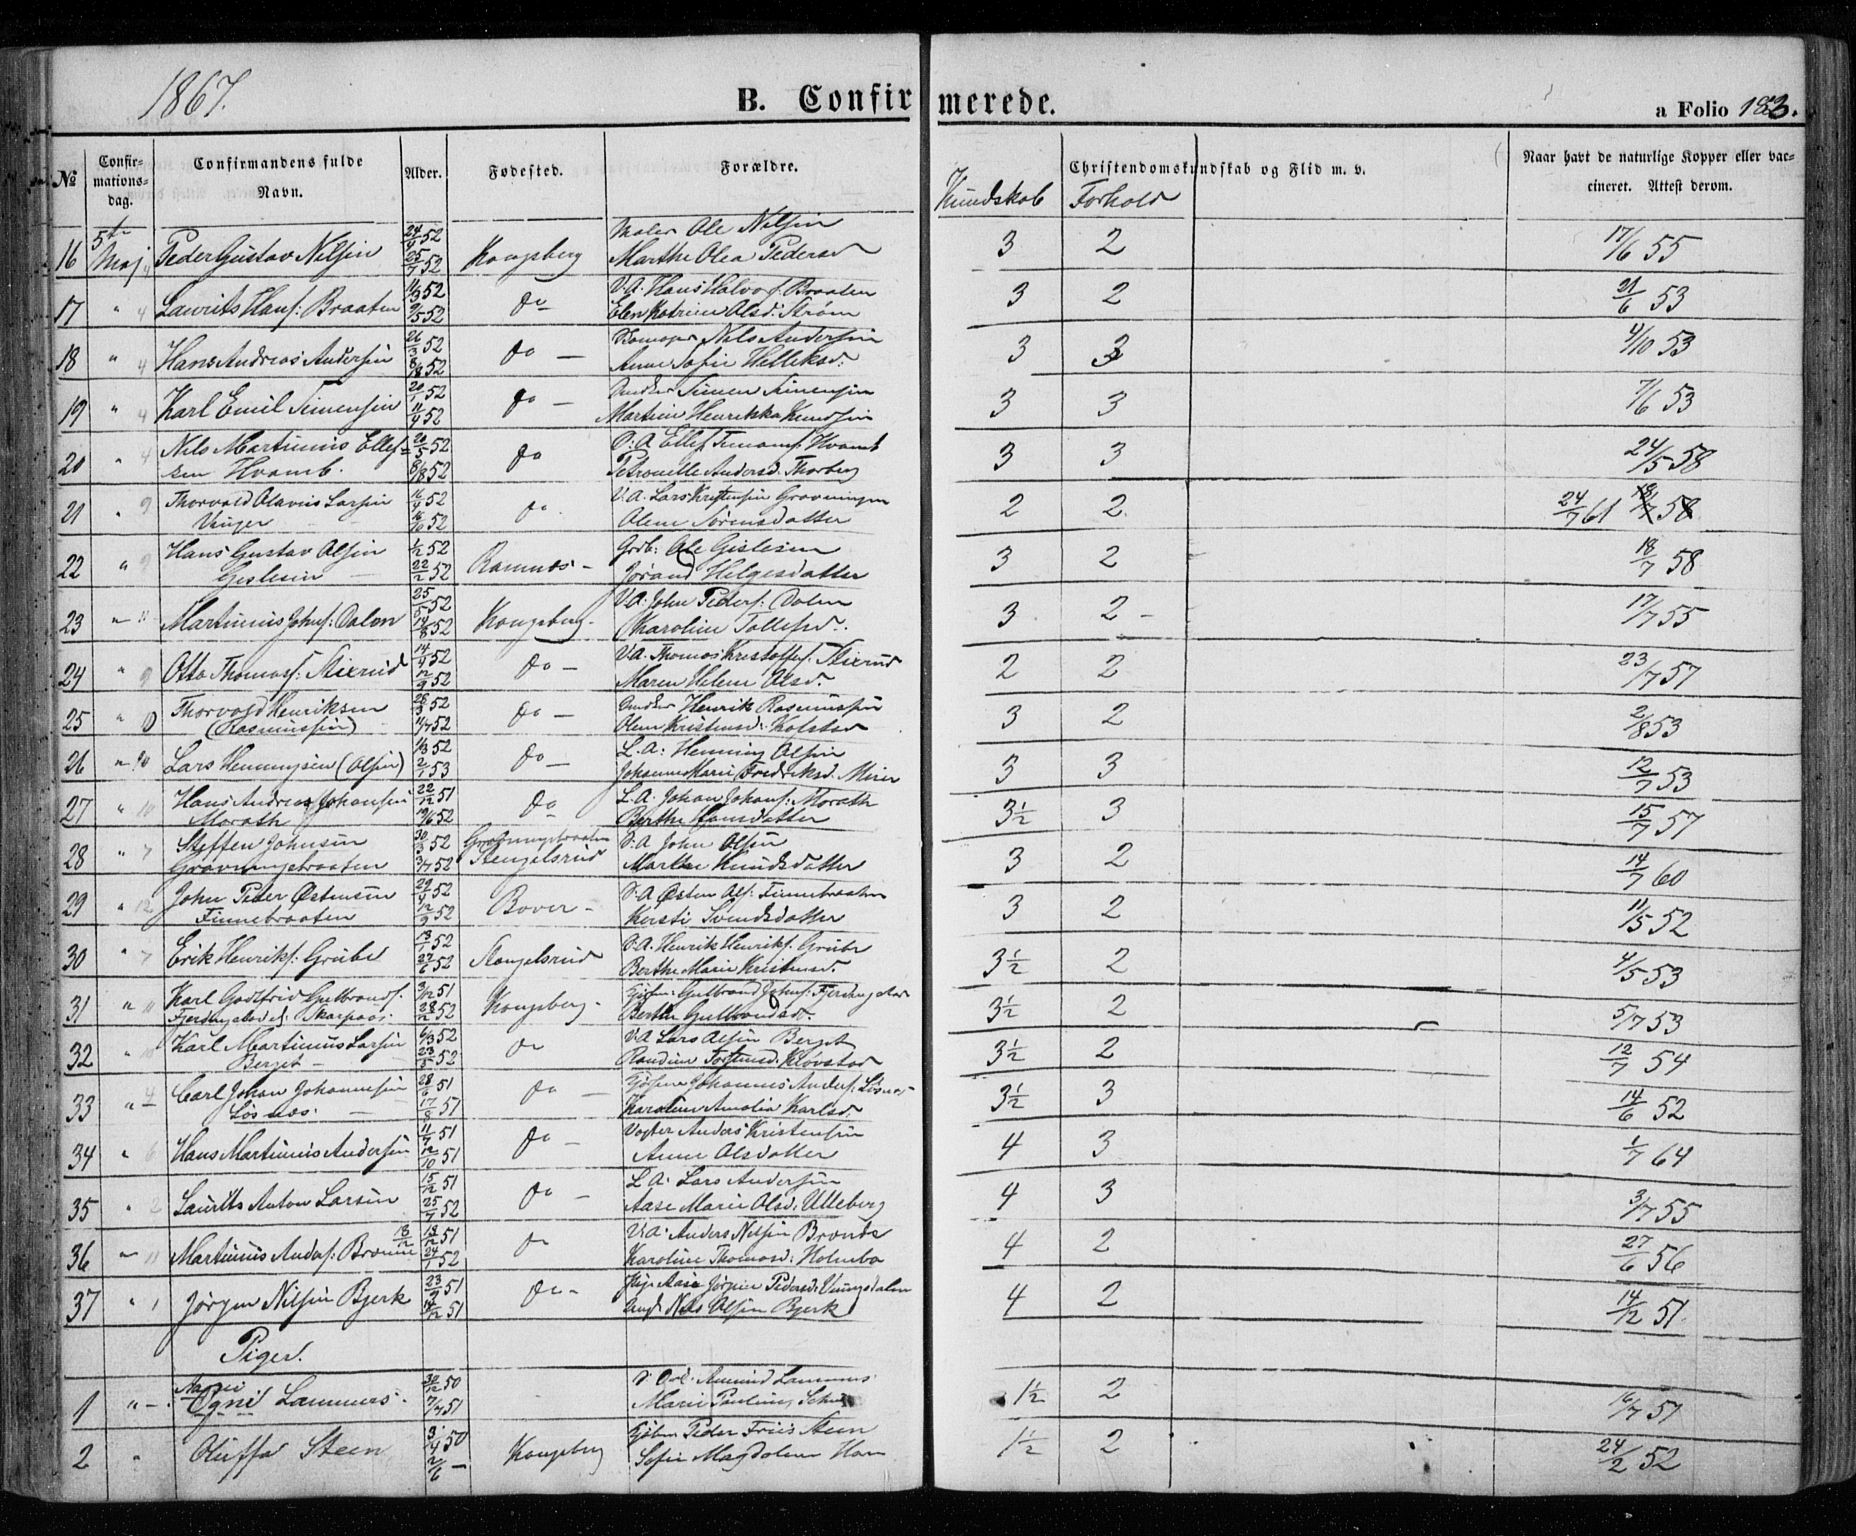 1867.
B. Confirmerede.
a Folio 183.
№ Confirmationsdag. Confirmandens fulde Navn. Alder. Fødested. Forældre. Kundskab Christendomskundskab og Flid m. v. Forhold Naar havt de naturlige Kopper eller vaccineret. Attest derom.
16 5te Maj Peder Gustav Nilsen 24/4 52 25/7 52 Kongsberg Maler Ole Nilsen Marthe Olea Pedersd 3 2 17/6 55
17 " 4 Laurits Hansf: Braaten 11/3 52 9/5 52 do V.A. Hans Halvorf. Braaten Elen Katrine Olsd: Strøm 3 2 21/6 53
18 " 4 Hans Andreas Andersen 26/3 52 8/8 52 do Nils Andersen Anne Sofie Helleksd. 3 3 4/10 53
19 " 4 Karl Emil Simensen 20/1 52 11/4 52 do Simen Simensen Martine Henrikka Knudsen 3 3 7/6 53
20 " 4 Nils Martinius Ellefsen Hvamb. 20/5 52 8/8 52 do D:A Ellef Hvamb Petronelle Andersd. Thorberg 3 3 24/5 58
21 " 9 Thorvald Olavus Larsen Unger 16/4 52 52 do. V.A. Lars Kristensen Gravningen Olene Sørensdatter 2 2 24/7 61 18/7 58
22 " 9 Hans Gustav Olsen Gislesen 1/2 52 22/2 52 Ramnæs Grdb: Ole Gislesen Jørand Helgesdatter 3 2 18/7 58
23 " 11 Martinius Johnf: Dalen 25/5 52 14/8 52 Kongsberg V.A. John Pedersf: Dalen Karoline Tollefsd. 3 2 17/7 55
24 " 9 Otto Thomasf: Stixrud 14/4 52 12/9 52 do V.A. Thomas Kristoffersf: Stixrud Maren Helene Olsd. 2 2 23/7 57
25 " 10 Thorvald Henriksen (Rasmussen) 28/3 52 11/7 52 do Henrik Rasmussen Olene Kristensd: Kolstad 3 2 2/8 53
26 " 10 Lars Henningsen (Olsen) 1/3 52 2/1 53 do L.A: Henning Olsen Johanne Marie Fredriksd. 3 3 12/7 53
27 " 10 Hans Andreas Johansen Morath 22/12 51 19/6 52 do L.A: Johan Johansf: Morath Berthe Hansdatter 3½ 3 15/7 57
28 " 7 Steffen Johnsen Gravningsbraaten 30/3 52 3/7 52 Gravningsbraaten Stengelsrud D.A John Olsen Marthe Knudsdatter 3 2 14/7 60
29 " 12 John Peder Østensen Finnebraaten 29/4 52 12/9 52 Bover D.A Østen Olsf: Finnebraaten Kersti Svendsdatter 3 2 11/15 52
30 " 7 Erik Henriksf: Grube 13/1 52 27/6 52 Stengelsrud D.A. Henrik Henriksf. Grube Berthe Marie Kristensd. 3½ 2 4/5 53
31 " 11 Karl Godtfrid Gulbrandsf. Fjerdingstad el. Skarpaas 3/12 51 28/2 52 Kongsberg Gulbrand Johnsf: Fjerdingstad Berthe Gulbrandsd. 3½ 2 5/7 53
32 " 10 Karl Martinius Larsen Berget 6/3 52 23/5 52 do V.A Lars Olsen Berget Randine Torstensd: Kløvstad 3½ 2 12/7 54
33 " 4 Carl Johan Johannesen Løsnæs 28/6 51 17/8 51 do Johannes Andersf: Løsnæs Karoline Amalia Karlsd. 3½ 3 14/6 52
34 " 6 Hans Martinius Andersen 11/7 51 12/10 51 do Vogter Anders Kristensen Anne Olsdatter 4 3 1/7 64
35 " 2 Laurits Anton Larsen 15/12 51 25/7 52 do L A: Lars Andersen Aase Marie Olsd: Ulleberg 4 3 3/7 55
36 " 11 Martinius Andersf: 13/12 13/12 51 24/1 52 do V.A: Anders Nilsen Karoline Thomasd: Holmbo 4 2 27/6 56
37 " 1 Jørgen Nilsen Bjerk 23/9 51 14/12 51 do Pige Jørgine Pedersd: Ungk Nils Olsen Bjerk 4 2 14/2 51
Piger.
1 " Aagni Ogni Lammers 30/12 50 7/4 51 Amund Lammers Marie Pauline 1½ 2 16/7 51
2 " Oluffa Steen 3/4 50 2/6 — Kongsberg Kjøbm Peder Friis Steen Sofie Magdalene 1½ 2 24/2 52